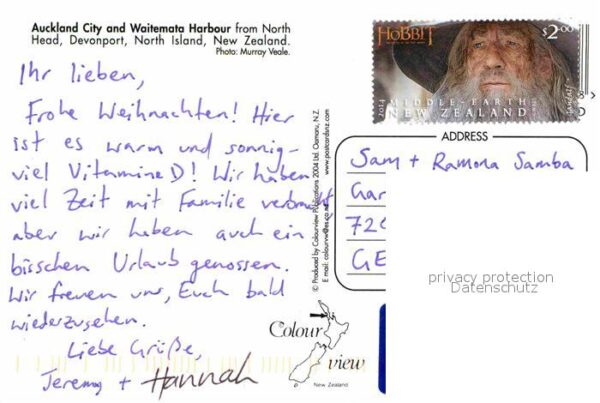 Auckland City and Waitemata Harbour from North
Head, Devonport, North Island, New Zealand.
Photo: Murray Veale.
Ihr lieben,
Frohe Weihnachten! Hier
ist es warm und sonnig-
viel Vitamine D! Wir haben
viel Zeit mit Familie verbracht
aber wir haben auch ein
bisschen Urlaub genossen.
Wir freuen uns, Euch bald
wiederzusehen.
Liebe Grüße,
Jeremy + Hannah
© Produced by Colourview Publications 2004 Ltd. Oamaru, N.Z.
www.postcardsnz.com
Colour
view
New Zealand
THE HOBBIT
$2.00
2014
MIDDLE-EARTH
NEW ZEALAND
Gandalf
ADDRESS
Sam + Ramona Samba
Gar
72
GE
privacy protection
Datenschutz